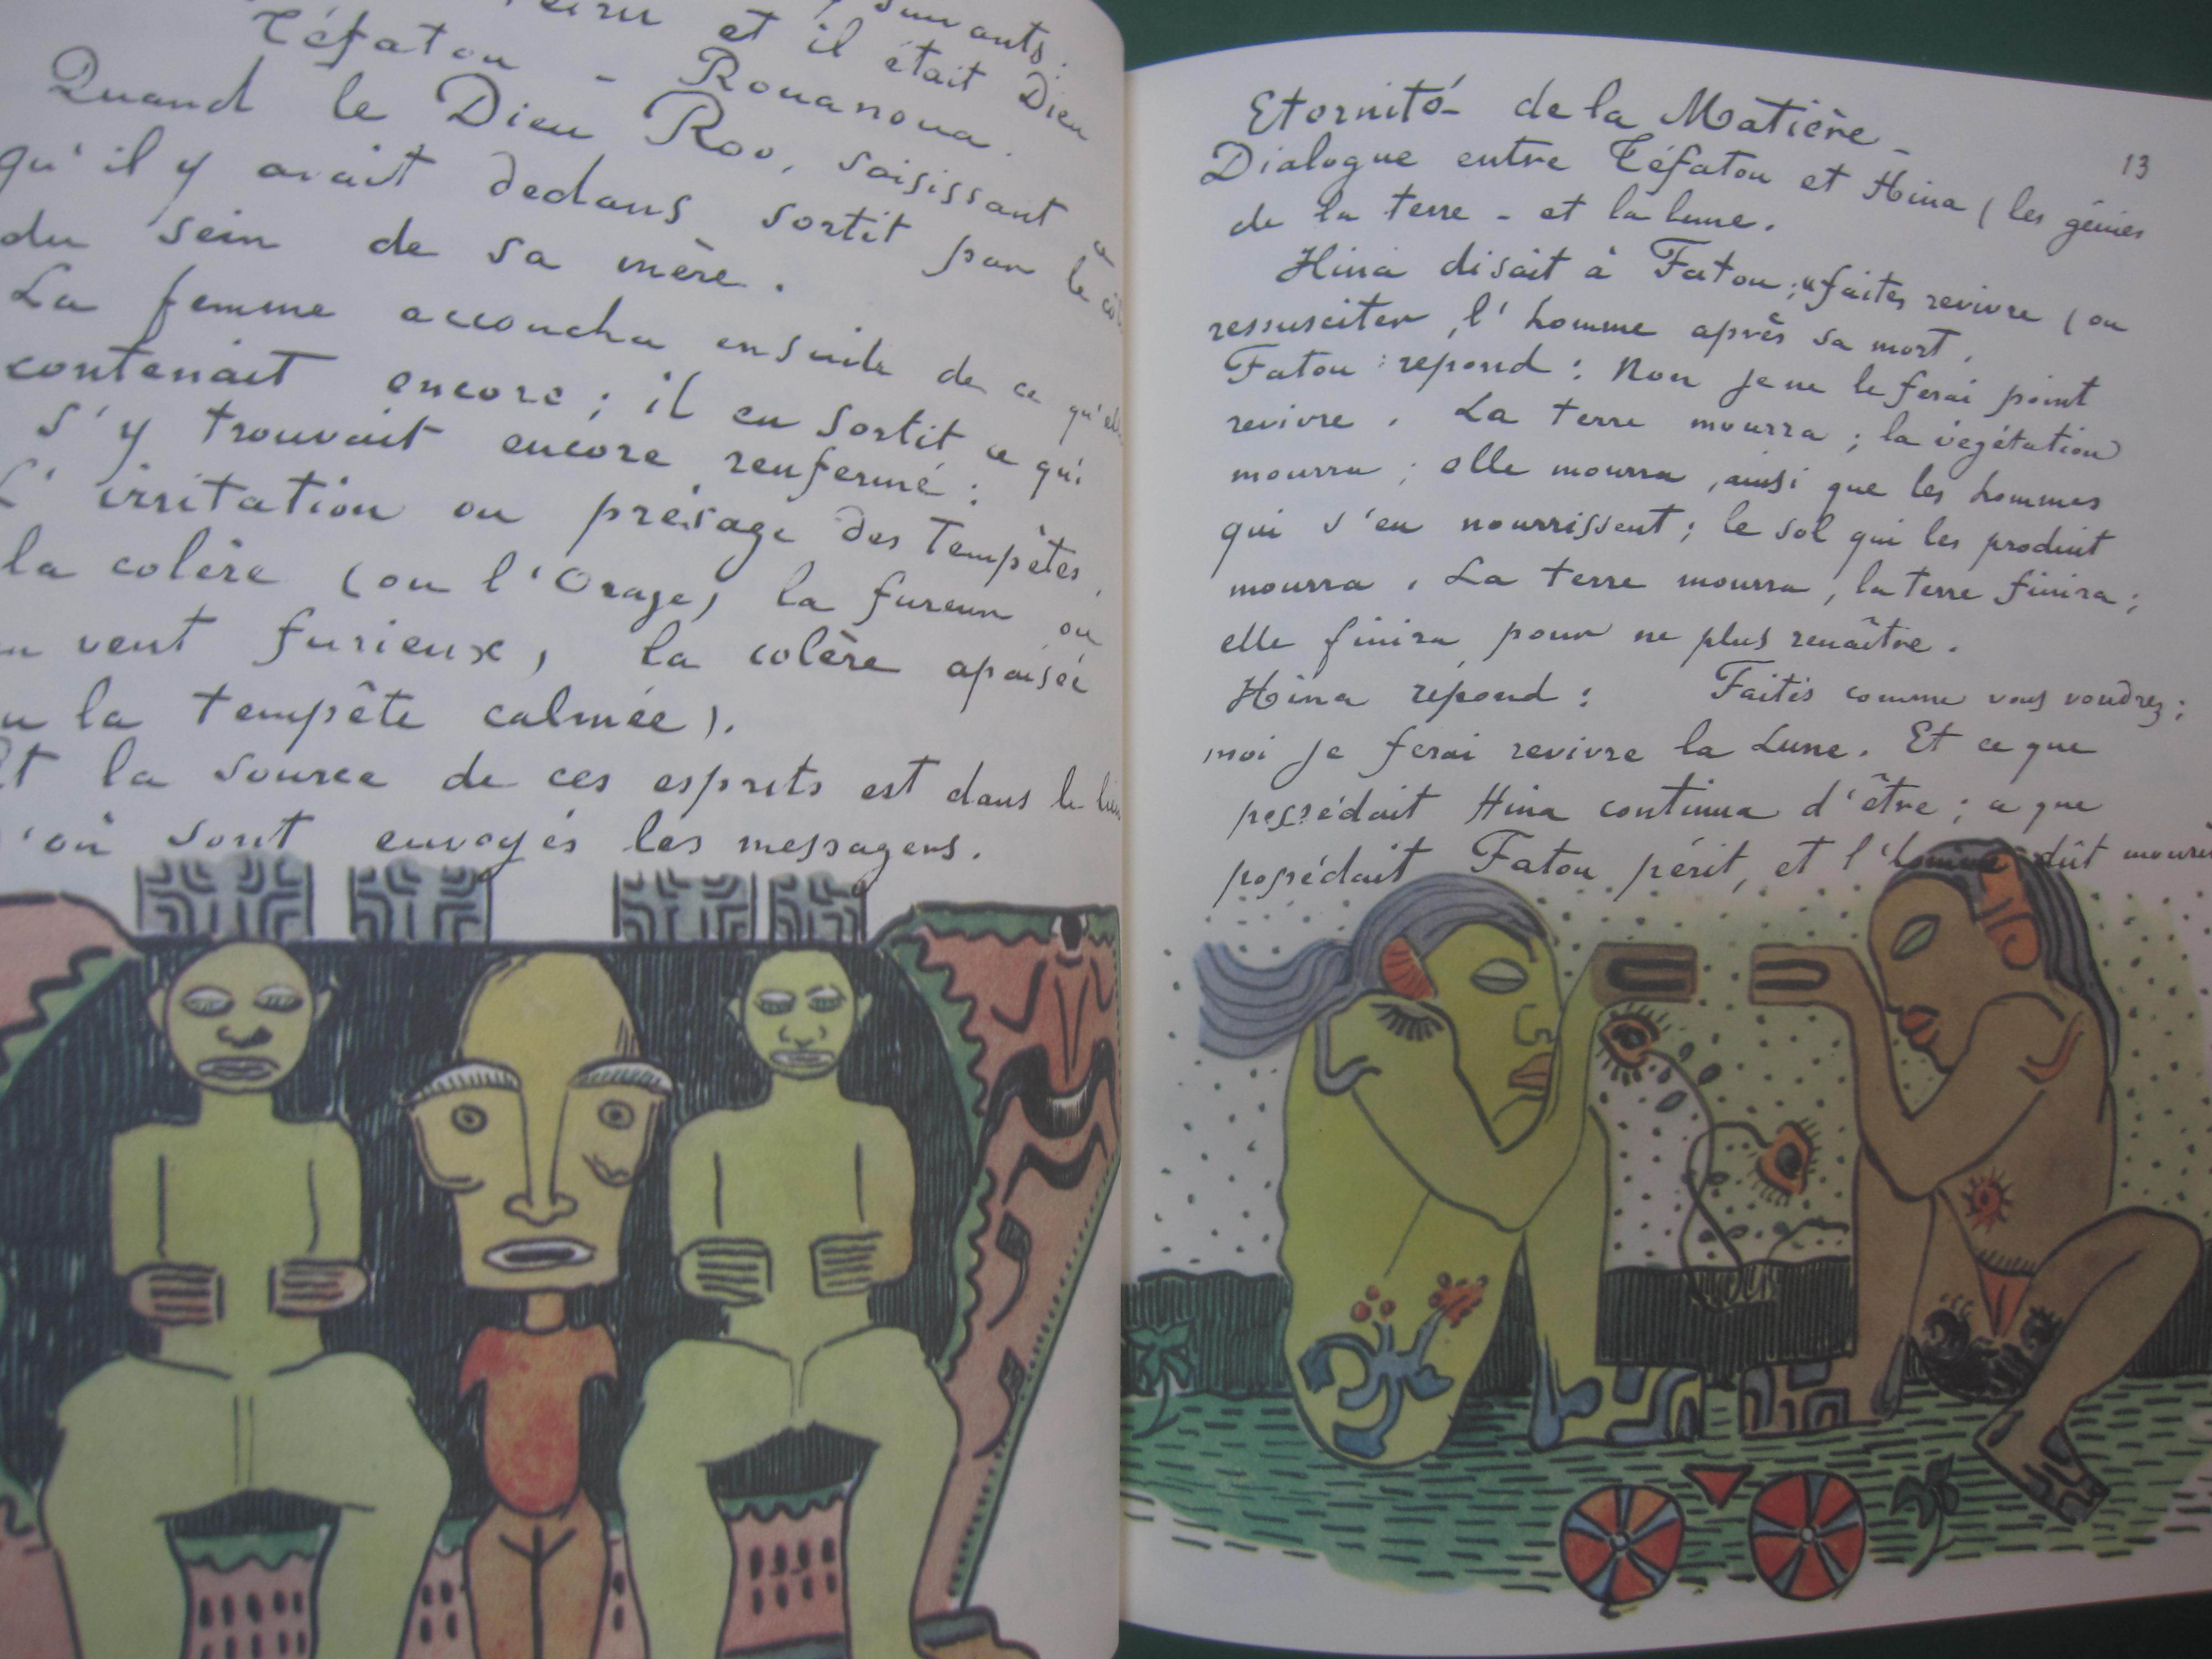 et il était Dieu
Téfatou - Rouanoua.
Quand le Dieu Roo, saisissant ce
qu'il y avait dedans sortit par le
du sein de sa mère.
La femme accoucha ensuite de ce
contenait encore ; il en sortit ce qui
s'y trouvait encore renfermé :
L'irritation ou présage des Tempêtes,
la colère (ou l'Orage) la fureur ou
vent furieux, la colère apaisée
la tempête calmée).
Et la source de ces esprits est dans le
d'où sont envoyés les messagers.
13
Eternité de la Matière -
Dialogue entre Téfatou et Hina (les génies
de la terre - et la lune.
Hina disait à Fatou ; "faites revivre (ou
ressusciter, l'homme après sa mort.
Fatou répond : Non je ne le ferai point
revivre. La terre mourra ; la végétation
mourra ; elle mourra, ainsi que les hommes
qui s'en nourrissent ; le sol qui les produit
mourra. La terre mourra, la terre finira ;
elle finira pour ne plus renaître.
Hina répond : Faites comme vous voudrez ;
moi je ferai revivre la Lune. Et ce que
possédait Hina continua d'être ; ce que
possédait Fatou périt, et l'homme dût mourir